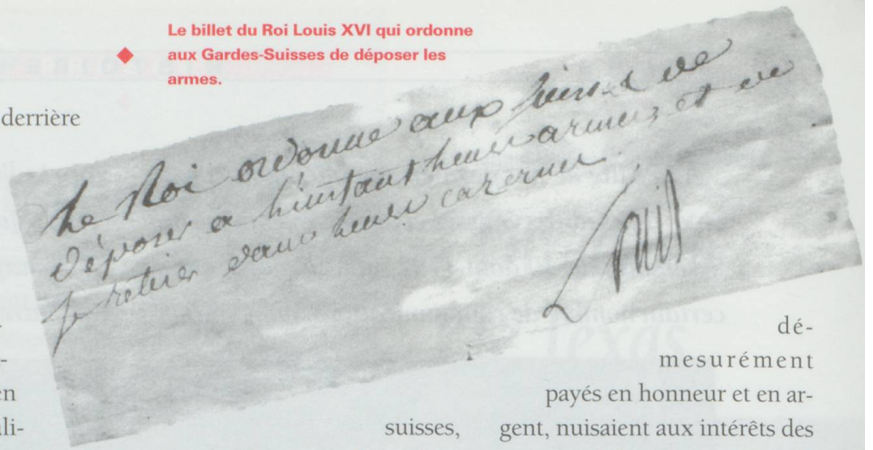 Le billet du Roi Louis XVI qui ordonne
aux Gardes-Suisses de déposer les
armes.
derrière
Le Roi ordonne aux Suisses de
déposer a l'instant leurs armes et de
se retirer dans leurs casernes
Louis
dé-
mesurément
en
payés en honneur et en ar-
li-
suisses, gent, nuisaient aux intérêts des